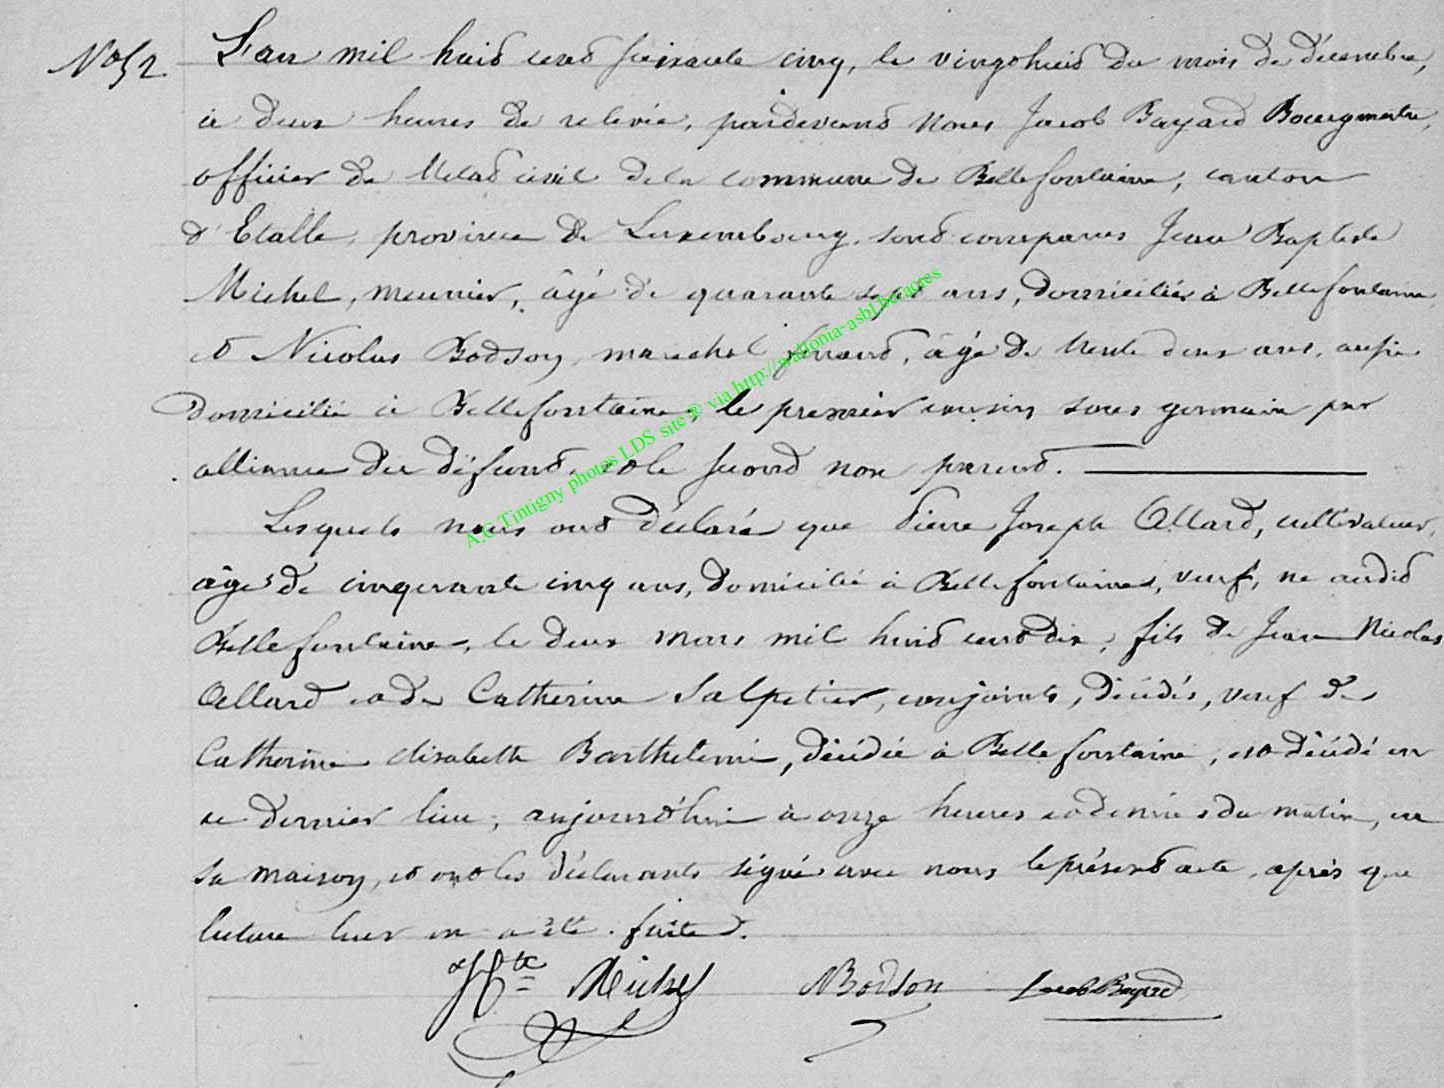 N° 52
L'an mil huit cent soixante cinq, le vingt huit du mois de décembre,
à deux heures de relevée, pardevant nous Jacob Bayard Bourgmestre,
officier de l'état civil de la commune de Bellefontaine, canton
d'Etalle, province de Luxembourg, sont comparus Jean Baptiste
Michel, meunier, âgé de quarante sept ans, domicilié à Bellefontaine
et Nicolas Bodson, maréchal ferrant, âgé de trente deux ans, aussi
domicilié à Bellefontaine, le premier cousin sous germain par
alliance du défunt, et le second non parent.
Lesquels nous ont déclaré que Pierre Joseph Allard, cultivateur,
âgé de cinquante cinq ans, domicilié à Bellefontaine, veuf, né audit
Bellefontaine, le deux mars mil huit cent dix, fils de Jean Nicolas
Allard et de Catherine Salpetier, conjoints, décédés, veuf de
Catherine élisabeth Barthelemi, décédée à Bellefontaine, est décédé en
ce dernier lieu, aujourd'hui à onze heures et demie du matin, en
sa maison, et ont les déclarants signé avec nous le présent acte, après que
lecture leur en a été faite.
JBte Michel NBodson Jacob Bayard
A.G Tintigny photos LDS site ® via http://wallonia-asbl.be/actes